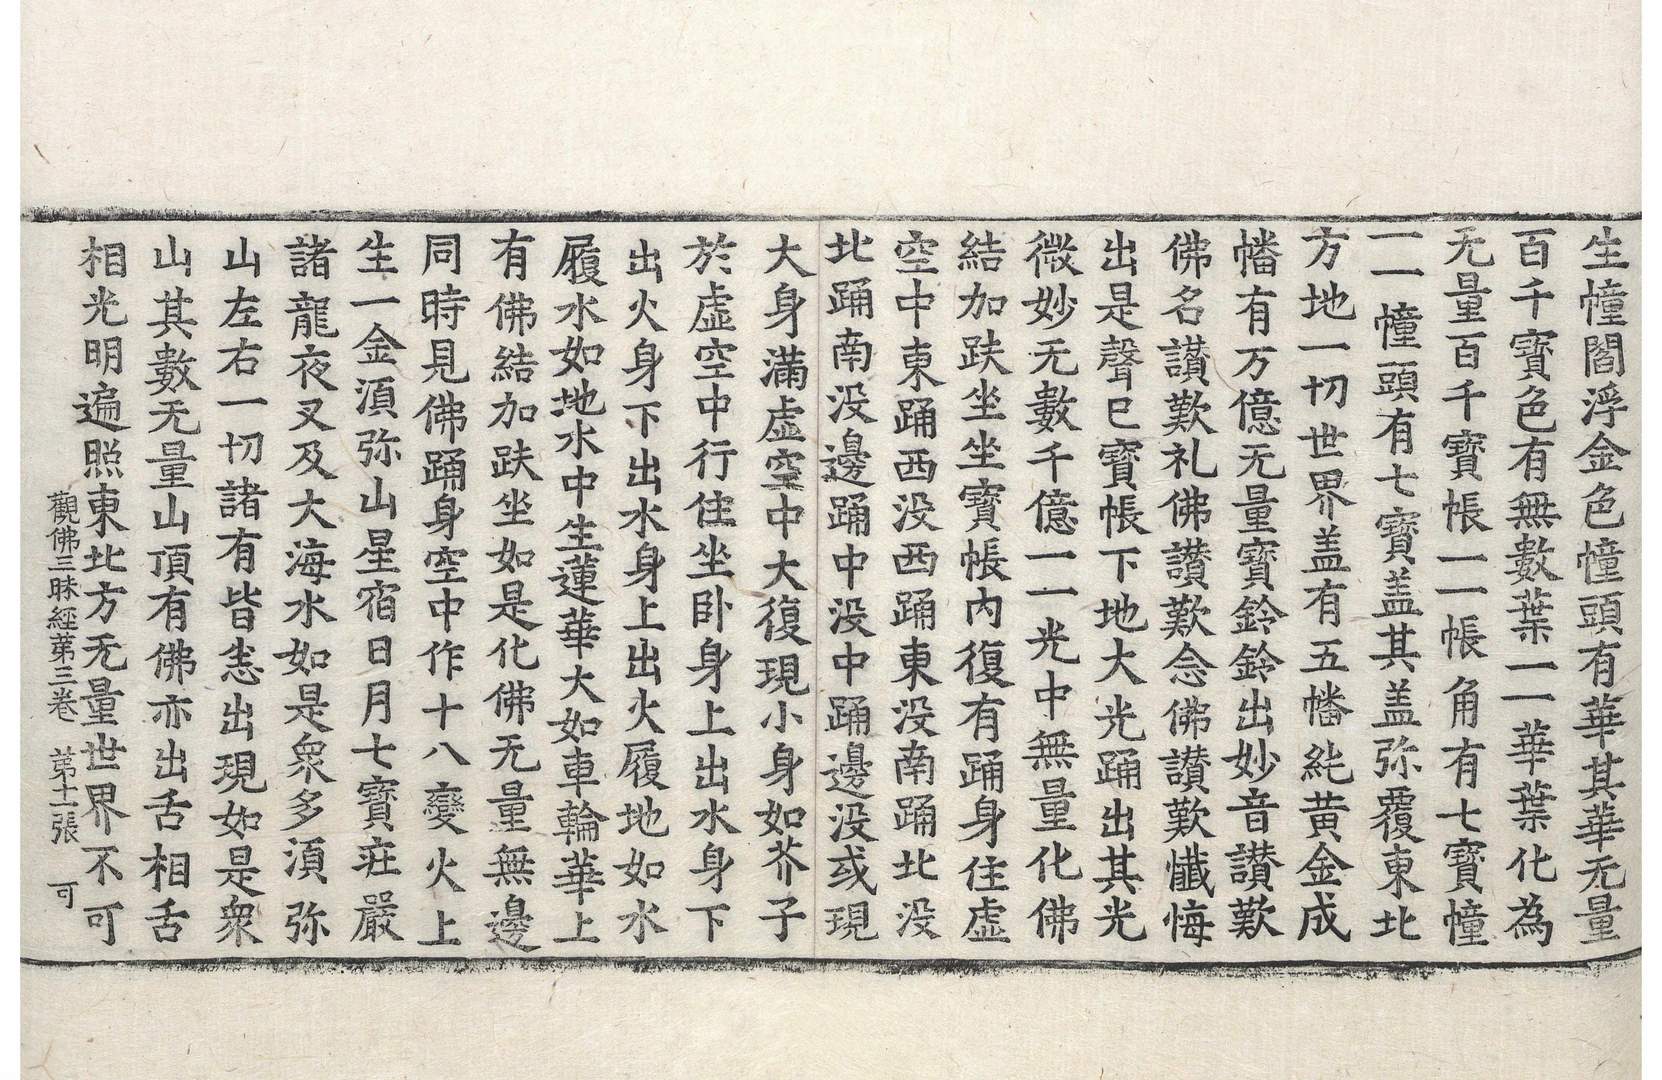 生幢閻浮金色幢頭有華其華无量
百千寶色有無數葉一一華葉化為
无量百千寶帳一一帳角有七寶幢
一一幢頭有七寶盖其盖弥覆東北
方地一切世界盖有五幡純黄金成
幡有万億无量寶鈴鈴出妙音讃歎
佛名讃歎礼佛讃歎念佛讃歎懺悔
出是聲已寶帳下地大光踊出其光
微妙无數千億一一光中無量化佛
結加趺坐坐寶帳内復有踊身住虚
空中東踊西没西踊東没南踊北没
北踊南没邊踊中没中踊邊没或現
大身滿虚空中大復現小身如芥子
於虚空中行住坐卧身上出水身下
出火身下出水身上出火履地如水
履水如地水中生蓮華大如車輪華上
有佛結加趺坐如是化佛无量無邊
同時見佛踊身空中作十八變火上
生一金湏弥山星宿日月七寶莊嚴
諸龍夜叉及大海水如是衆多湏弥
山左右一切諸有皆悉出現如是衆
山其數无量山頂有佛亦出舌相舌
相光明遍照東北方无量世界不可
觀佛三昧經苐三卷 苐十二張 可